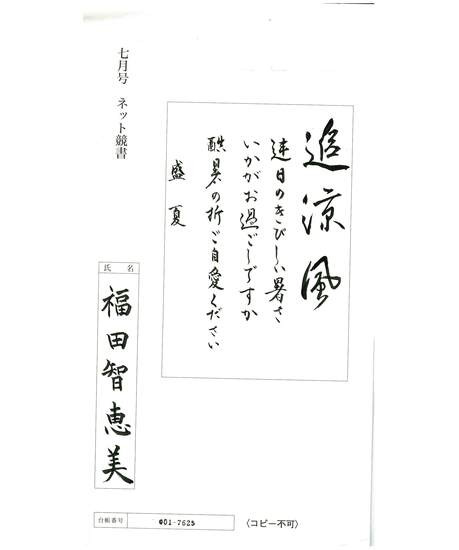 追涼風
連日のきびしい暑さ
いかがお過ごしですか
酷暑の折ご自愛ください
盛夏
七月号 ネット競書
氏名
福田智恵美
台帳番号
001-7625
〈コピー不可〉